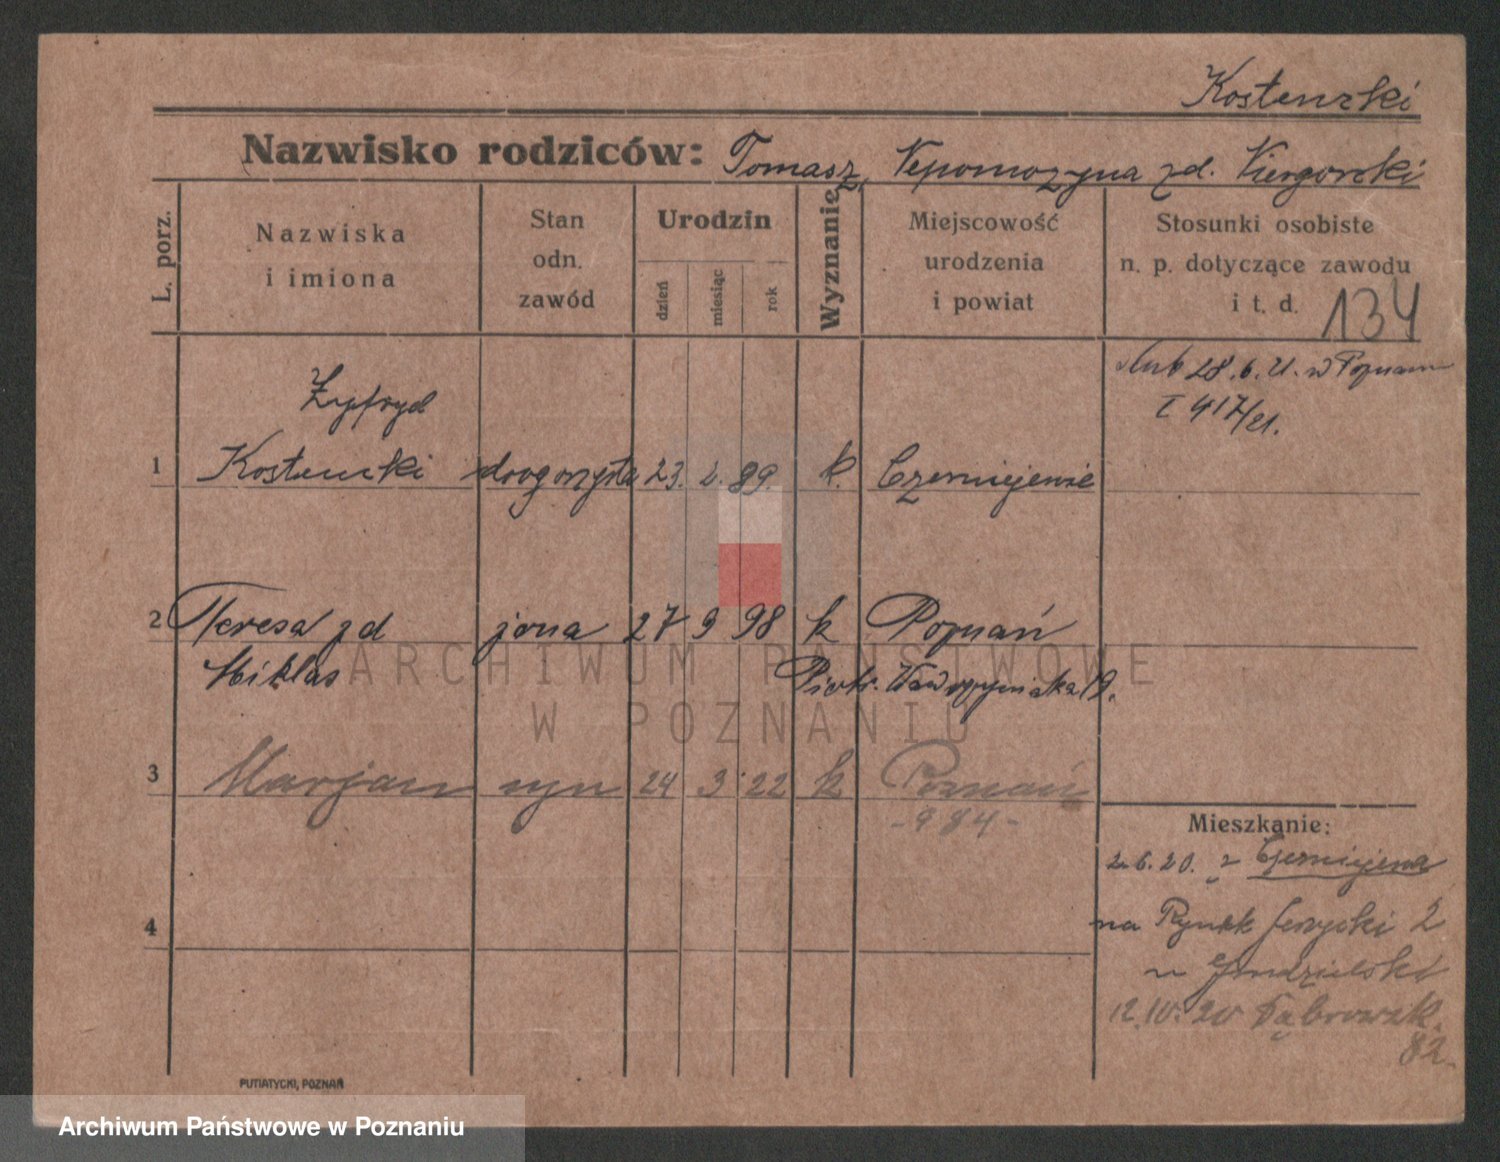 Kostenski
Nazwisko rodziców: Tomasz, Nepomozyna zd. Viergorski
L. porz.
Nazwiska
i imiona
Stan
odn.
zawód
Urodzin
dzień
miesiąc
rok
Wyznanie
Miejscowość
urodzenia
i powiat
Stosunki osobiste
n. p. dotyczące zawodu
i t. d.
134
ślub 28.6.21. w Poznaniu
I 417/21.
Zygfryd
1 Kostenski drogorzysta 23. 2. 89. k. Czerniejewie
2 Teresa zd żona 27 9 98 k Poznań
Miklas Piotr. Wawrzyniaka 19.
ARCHIWUM PAŃSTWOWE
W POZNANIU
3 Marjan syn 24 3 22 k Poznań
- 984 -
Mieszkanie:
2.6.20. z Czerniejewa
4
na Rynek Jeżycki 2
u
12.10.20 Dąbrowsk.
82
PUTIATYCKI, POZNAŃ
Archiwum Państwowe w Poznaniu